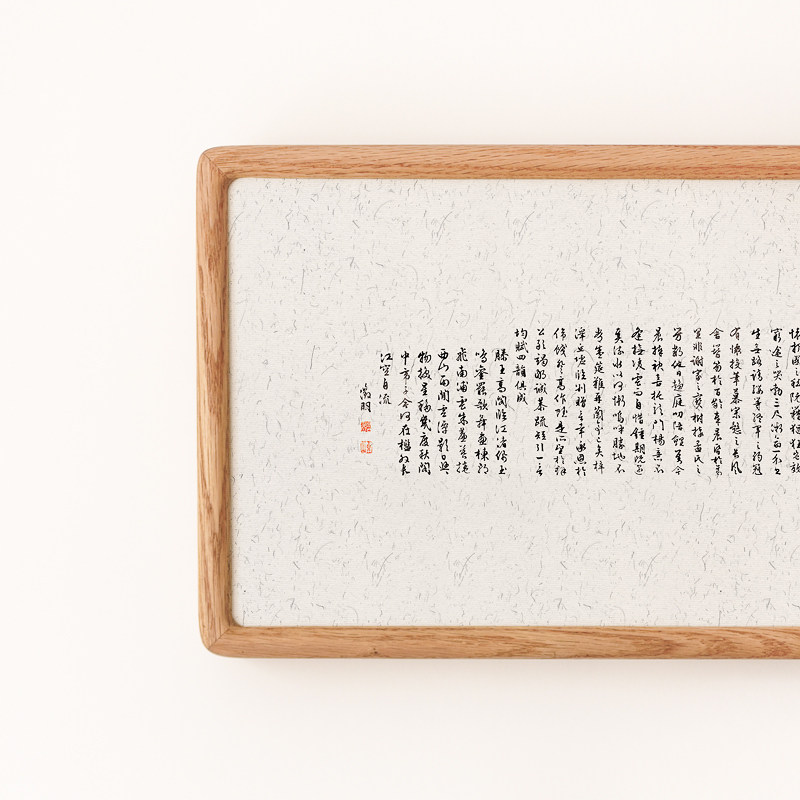 阮籍猖狂豈效
窮途之哭勃三尺微命一介書
生無路請纓等終軍之弱冠
有懷投筆慕宗愨之長風
舍簪笏於百齡奉晨昏於萬
里非謝家之寶樹接孟氏之
芳鄰他日趨庭叨陪鯉對今
晨捧袂喜托龍門楊意不
逢撫凌雲而自惜鍾期既遇
奏流水以何慚嗚呼勝地不
常盛筵難再蘭亭已矣梓
澤丘墟臨別贈言幸承恩於
偉餞登高作賦是所望於群
公敢竭鄙誠恭疏短引一言
均賦四韻俱成
滕王高閣臨江渚佩玉
鳴鸞罷歌舞畫棟朝
飛南浦雲珠簾暮捲
西山雨閒雲潭影日悠々
物換星移幾度秋閣
中帝子今何在檻外長
江空自流
徵明